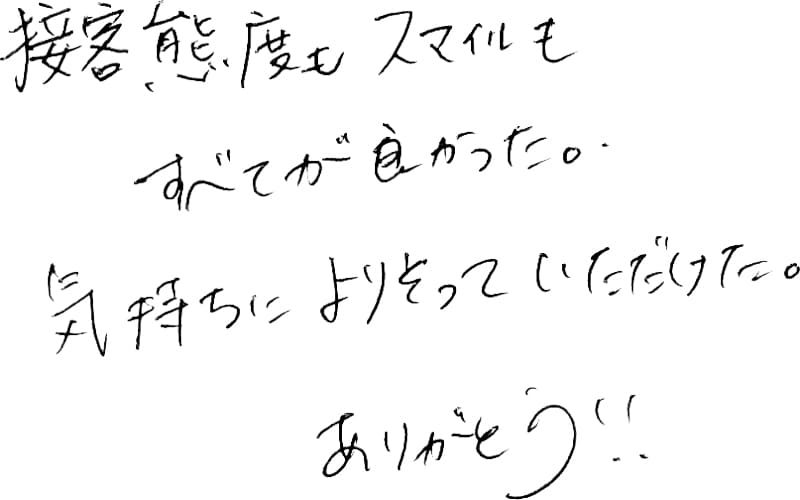 接客態度もスマイルも
すべてが良かった。
気持ちによりそっていただけた。
ありがとう!!